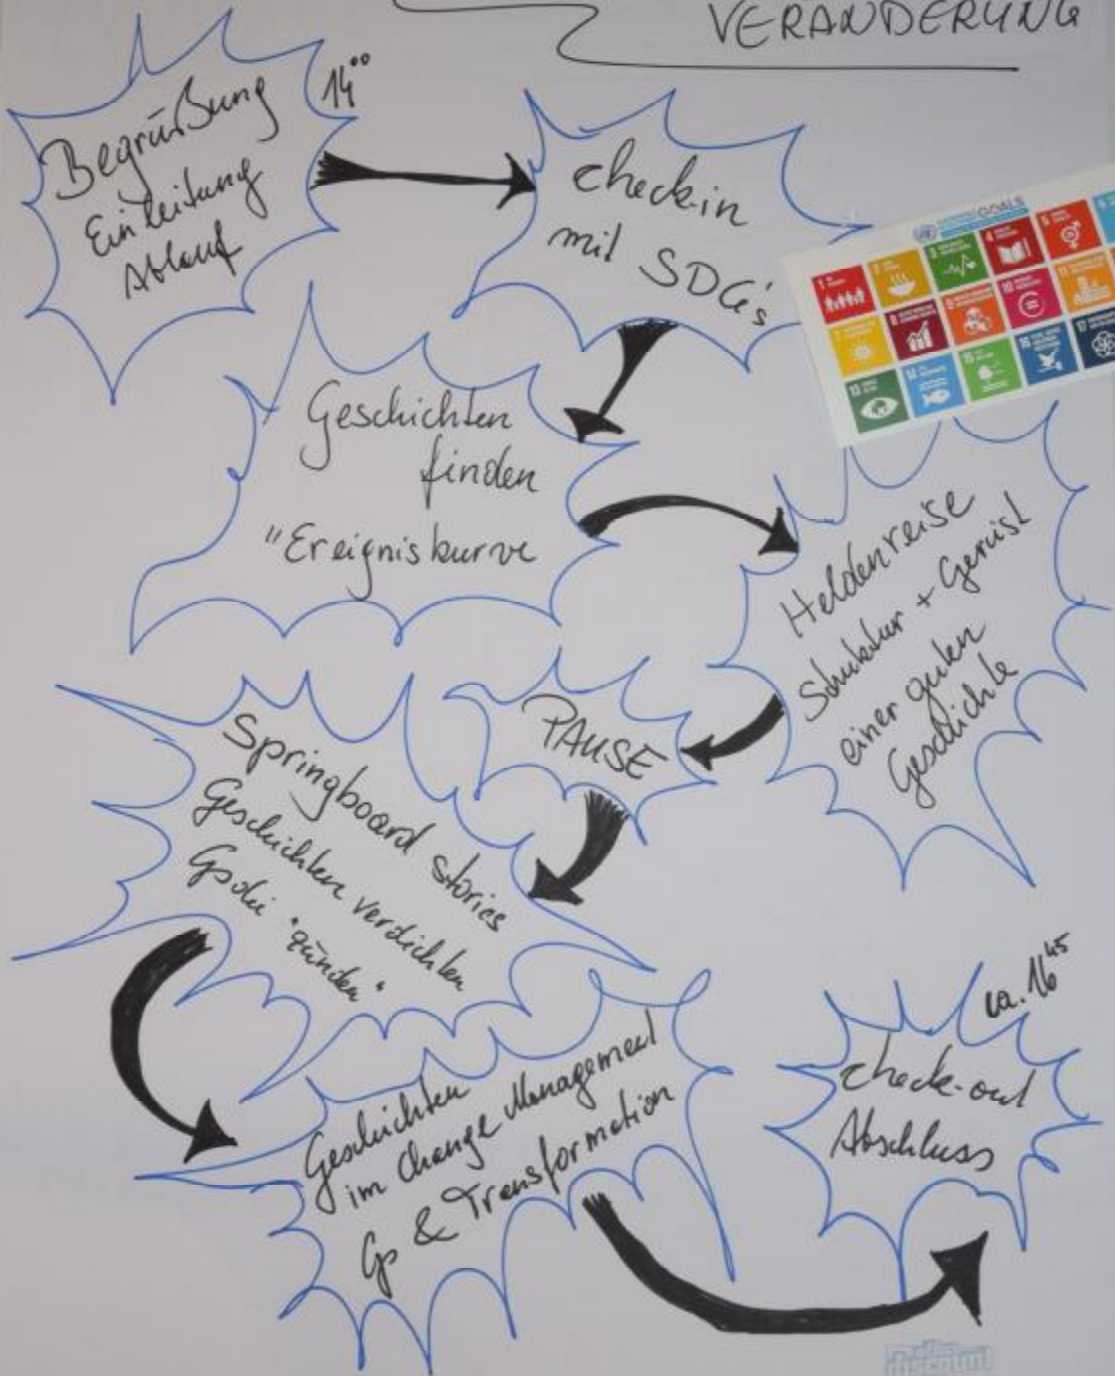 VERÄNDERUNG
14⁰⁰
Begrüßung
Einleitung
Ablauf
check-in
mit SDG's
GOALS
Geschichten
finden
"Ereigniskurve
Heldenreise
Struktur + Gerüst
einer guten
Geschichte
PAUSE
Springboard stories
Geschichten verdichten
Gs die "zünden"
Geschichten
im Change Management
Gs & Transformation
ca. 16⁴⁵
check-out
Abschluss
discount